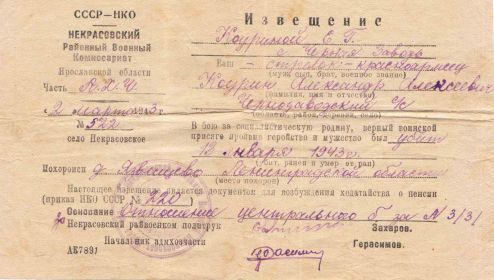 СССР-НКО
НЕКРАСОВСКИЙ
Районный Военный
Комиссариат
Ярославской области
Часть
2 марта 1943 г.
№ 522
село Некрасовское
Извещение
Коуриной Е. Г.
с. Черная Заводь
Ваш - стрелок-красноармеец
(муж, сын, брат, военное звание)
Коурин Александр Алексеевич
(фамилия, имя и отчество)
Чернозаводский с/с
(область, район, деревня, село)
В бою за социалистическую родину, верный воинской
присяге проявив геройство и мужество был убит
13 января 1943 г.
(быт, ранен и умер от ран)
Похоронен д. Ленинградской области
(место похорон)
Настоящее извещение является документом для возбуждения ходатайства о пенсии
(приказ НКО СССР № 220)
Основание Отношение центрального б. за № 3/31
Некрасовский райвоенком политрук Захаров.
Начальник адмхозчасти Герасимов.
АБ7891